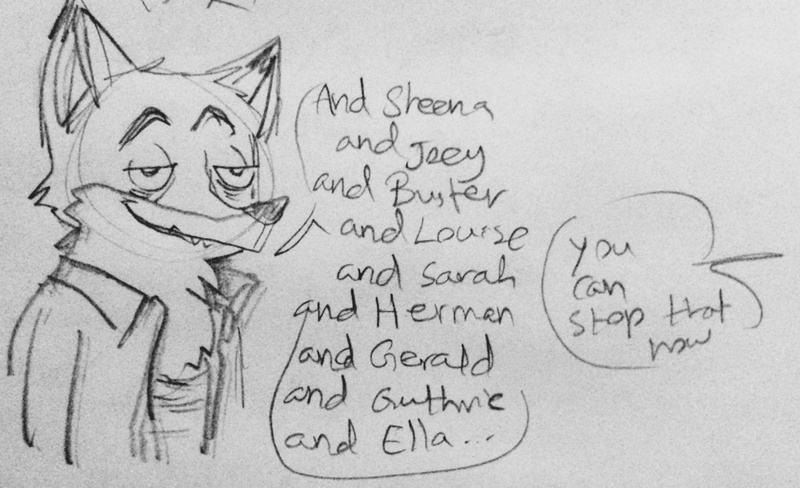 And Sheena
and Joey
and Buster
and Louise
and Sarah
and Herman
and Gerald
and Guthrie
and Ella...
you
can
stop that
now